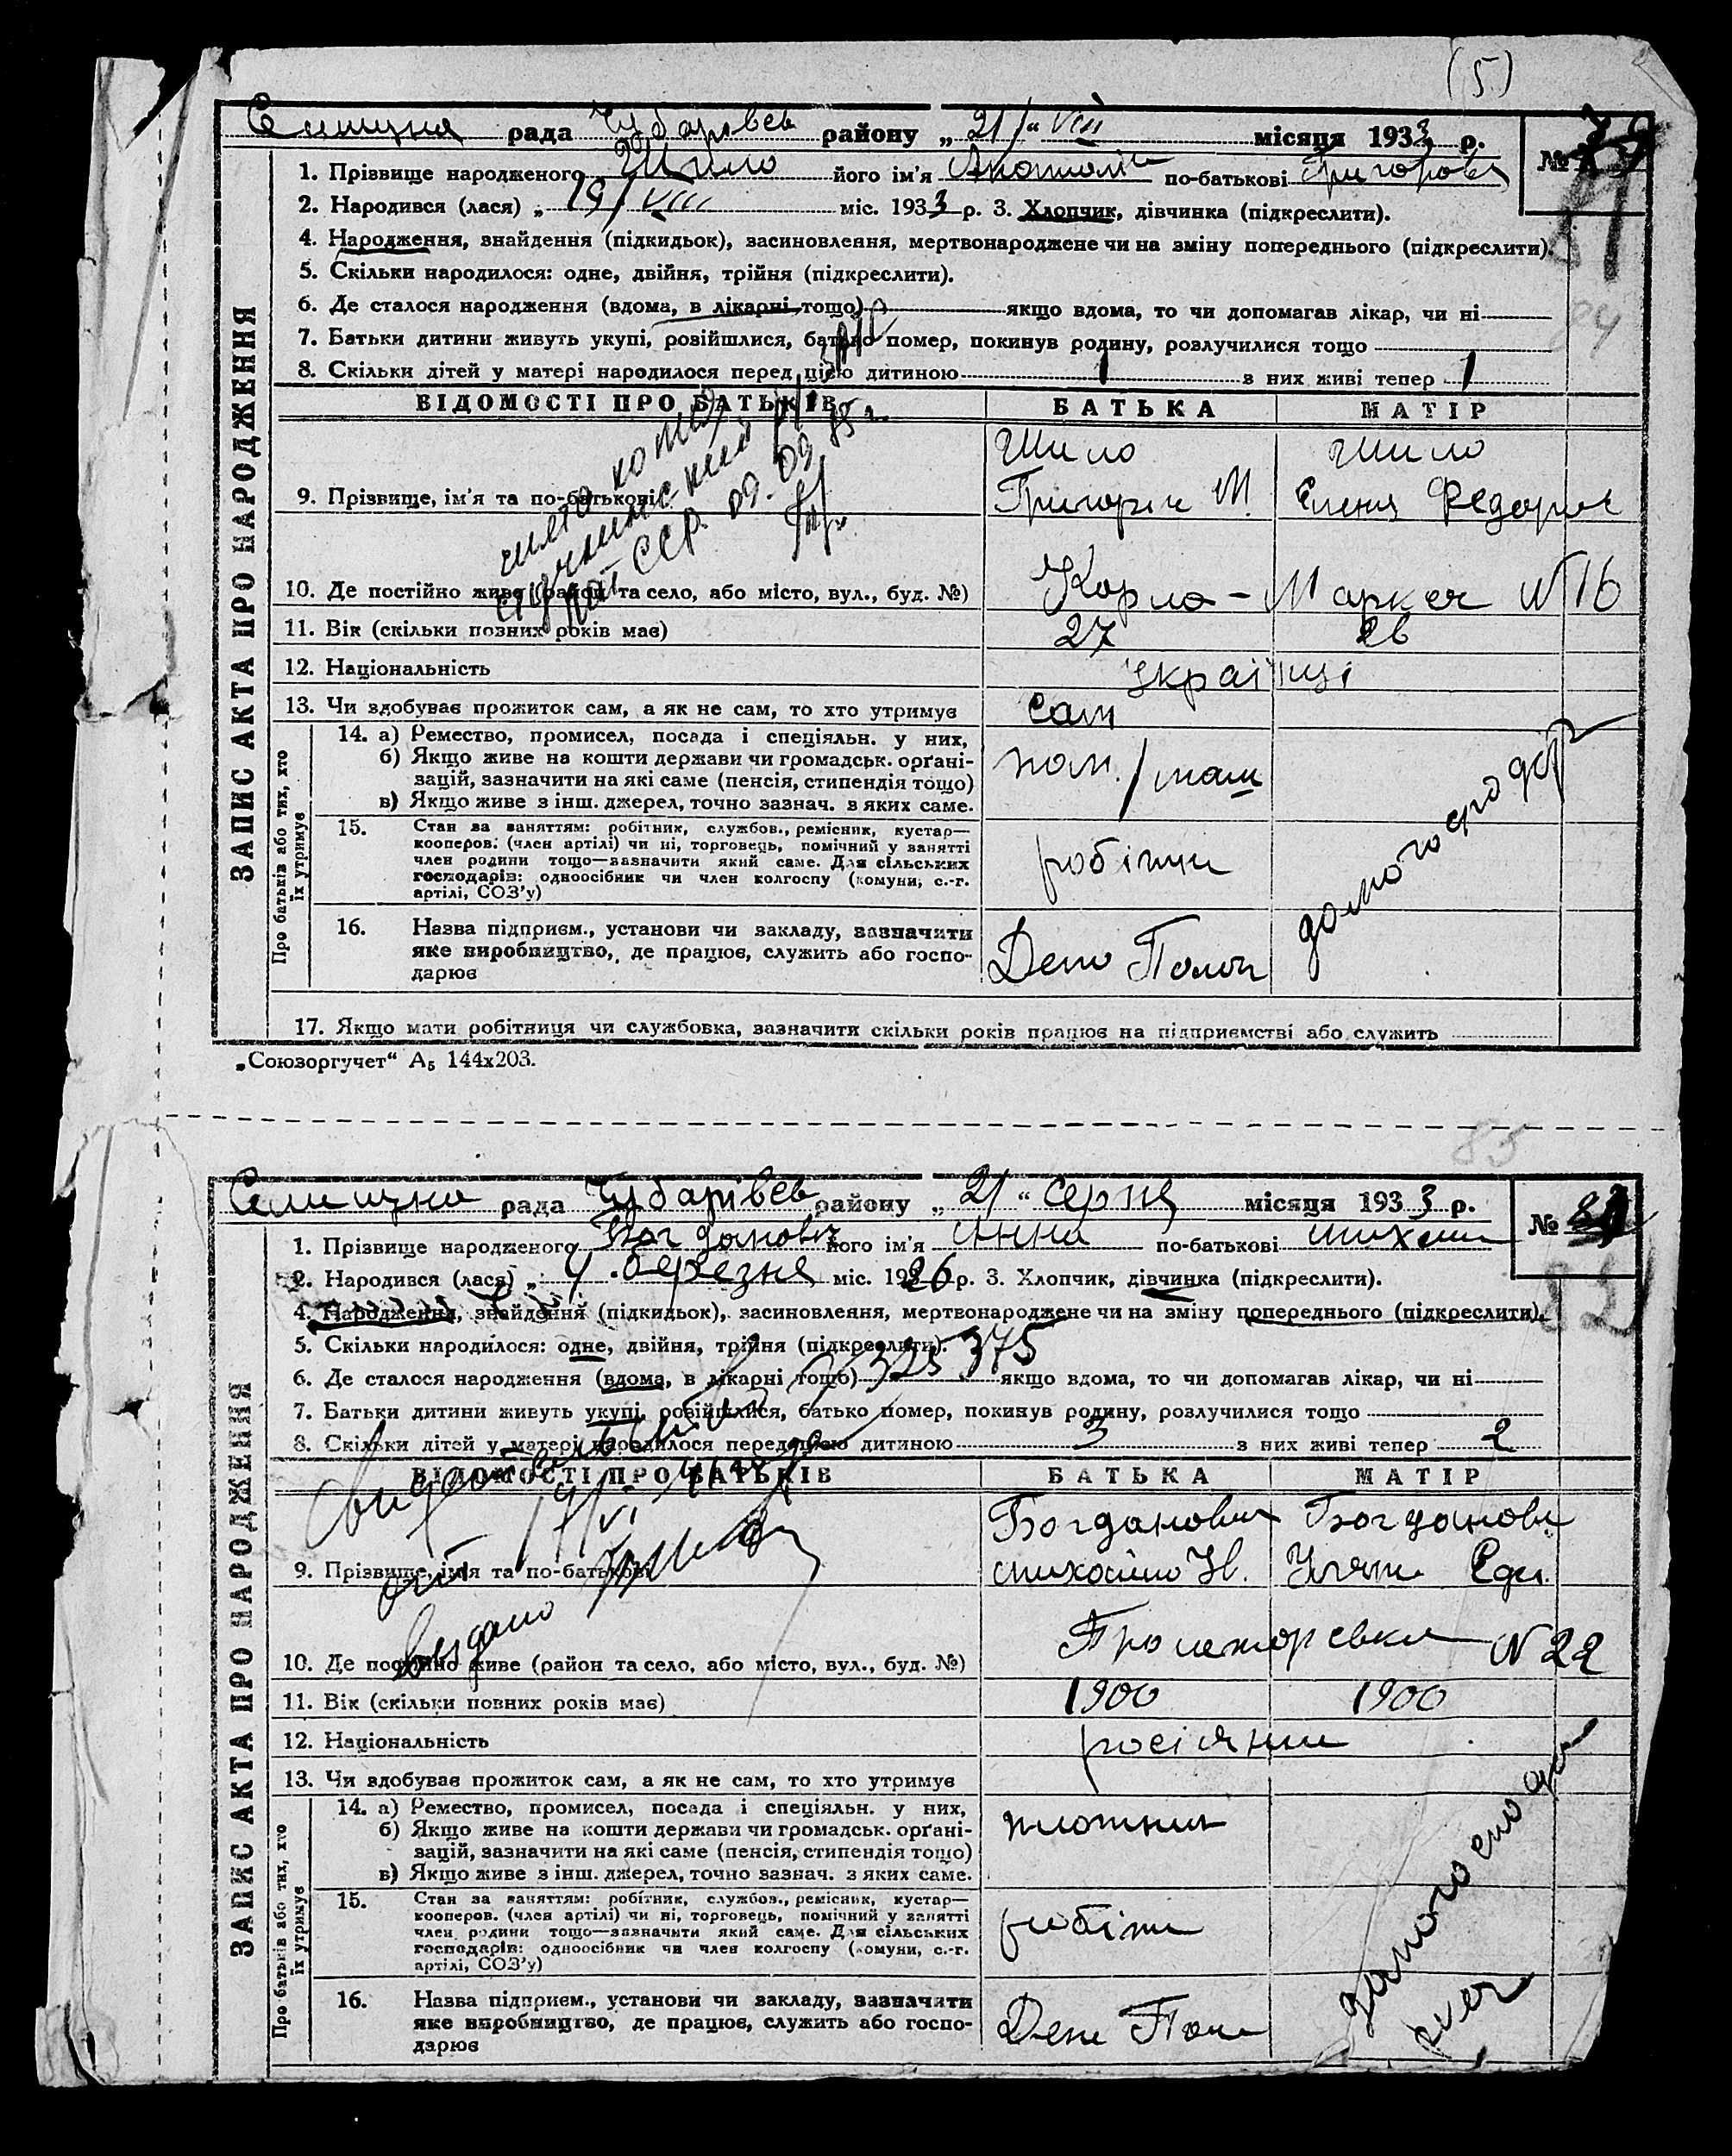 (5)
рада Чубарівсв району „21“ VIII місяця 1933 р.
№
1. Прізвище народженого Шило його ім'я Анатолій по-батькові Григоров
2. Народився (лася) „ 19/VIII міс. 1933 р. 3. Хлопчик, дівчинка (підкреслити).
4. Народження, знайдення (підкидьок), засиновлення, мертвонароджене чи на зміну попереднього (підкреслити).
5. Скільки народилося: одне, двійня, трійня (підкреслити).
84
6. Де сталося народження (вдома, в лікарні тощо) якщо вдома, то чи допомагав лікар, чи ні
7. Батьки дитини живуть укупі, розійшлися, батько помер, покинув родину, розлучилися тощо
8. Скільки дітей у матері народилося перед цією дитиною 1 з них живі тепер 1
ЗАПИС АКТА ПРО НАРОДЖЕННЯ
ВІДОМОСТІ ПРО БАТЬКІВ БАТЬКА МАТІР
Шило Шило
9. Прізвище, ім'я та по-батькові Григорій М. Елена Федоров
ССР. 09.09.85 г.
10. Де постійно живе (район та село, або місто, вул., буд. №) Карла-Маркса N 16
11. Вік (скільки повних років має) 27 26
12. Національність українці
13. Чи здобуває прожиток сам, а як не сам, то хто утримує Сам
Про батьків або тих, хто їх утримує
14. а) Ремество, промисел, посада і спеціяльн. у них,
б) Якщо живе на кошти держави чи громадськ. органі-
зацій, зазначити на які саме (пенсія, стипендія тощо) пом./маш
в) Якщо живе з інш. джерел, точно зазнач. з яких саме.
15. Стан за заняттям: робітник, службов., ремісник, кустар—
кооперов. (член артілі) чи ні, торговець, помічний у занятті
член родини тощо—зазначити який саме. Для сільських робітни
господарів: одноосібник чи член колгоспу (комуни, с.-г.
артілі, СОЗ'у)
домогосподар
16. Назва підприєм., установи чи закладу, зазначити
яке виробництво, де працює, служить або госпо- Депо Пологи
дарює
17. Якщо мати робітниця чи службовка, зазначити скільки років працює на підприємстві або служить
„Союзоргучет“ А5 144х203.
85
Селищна рада Чубарівсв району „21“ серпня місяця 1933 р.
№
1. Прізвище народженого Богданович його ім'я Анна по-батькові Михайл
2. Народився (лася) „ 4 березня міс. 1926 р. 3. Хлопчик, дівчинка (підкреслити).
82
4. Народження, знайдення (підкидьок), засиновлення, мертвонароджене чи на зміну попереднього (підкреслити).
5. Скільки народилося: одне, двійня, трійня (підкреслити). 375
6. Де сталося народження (вдома, в лікарні тощо) 325 якщо вдома, то чи допомагав лікар, чи ні
7. Батьки дитини живуть укупі, розійшлися, батько помер, покинув родину, розлучилися тощо
8. Скільки дітей у матері народилося перед цією дитиною 3 з них живі тепер 2
ЗАПИС АКТА ПРО НАРОДЖЕННЯ
ВІДОМОСТІ ПРО БАТЬКІВ БАТЬКА МАТІР
Богданович Богданови
9. Прізвище, ім'я та по-батькові Михайло Ив. Уляна
от
выдано
10. Де постійно живе (район та село, або місто, вул., буд. №) Пролетарська N 22
11. Вік (скільки повних років має) 1900 1900
12. Національність росіянин
13. Чи здобуває прожиток сам, а як не сам, то хто утримує
Про батьків або тих, хто їх утримує
14. а) Ремество, промисел, посада і спеціяльн. у них,
б) Якщо живе на кошти держави чи громадськ. органі- плотник
зацій, зазначити на які саме (пенсія, стипендія тощо)
в) Якщо живе з інш. джерел, точно зазнач. з яких саме.
15. Стан за заняттям: робітник, службов., ремісник, кустар—
кооперов. (член артілі) чи ні, торговець, помічний у занятті
член родини тощо—зазначити який саме. Для сільських робітн
господарів: одноосібник чи член колгоспу (комуни, с.-г.
артілі, СОЗ'у)
домогосподар
16. Назва підприєм., установи чи закладу, зазначити
яке виробництво, де працює, служить або госпо- Депо Поло
дарює